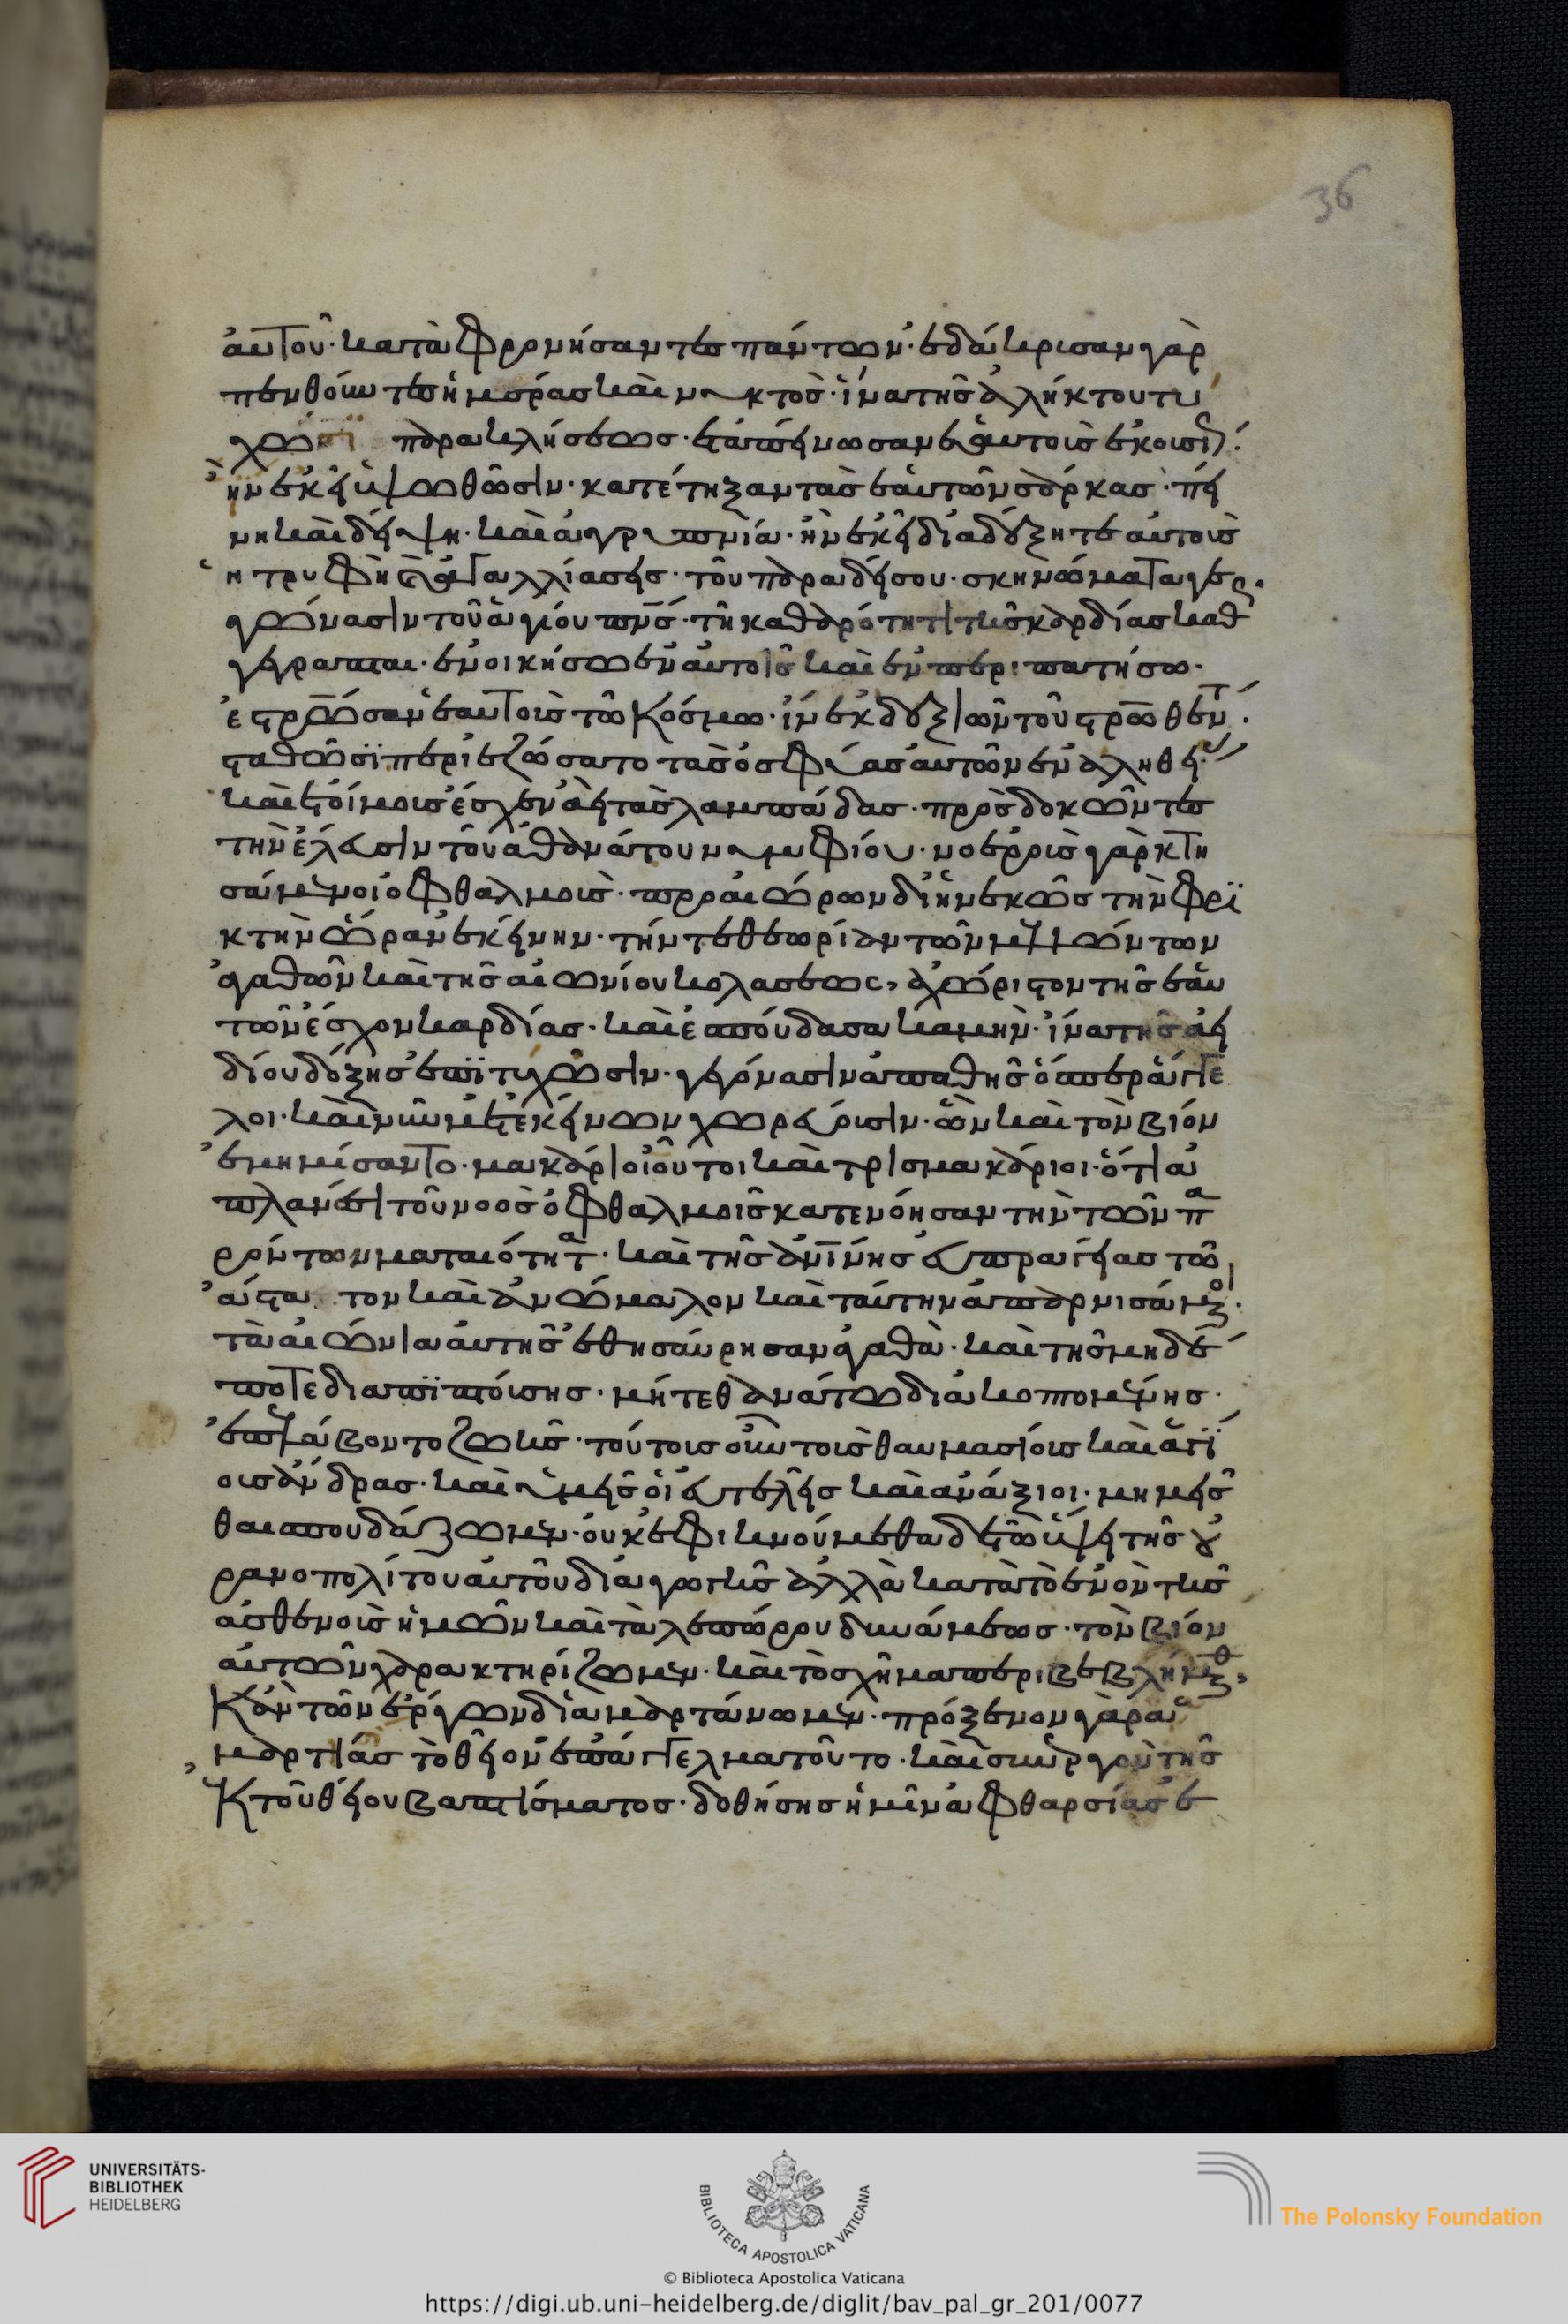 αυτοῦ· καταφρονήσαντες πάντων· ἐδάκρισαν γὰρ
πενθοῦντες ἡμέρας καὶ νυκτὸς· ἵνα τῆς ἀλήκτου τύ
χωσϊ παρακλήσεως· ἐταπήνωσαν ἑαυτοὺς ἐκουσί(ως)·
ἵν ἐκῆ ὑψωθῶσιν· κατέτηξαν τὰς ἑαυτῶν σάρκας· πή
νη καὶ δήψη· καὶ ἀγρυπνία· ἵν ἐκῆ διαδέξητε αὐτοὺς
ἡ τρυφὴ καὶ ἀγαλλίασης· τοῦ παραδήσου· σκηνώματα γε
γώνασιν τοῦ ἁγίου πν̅ς· τῆ καθαρότητι τῆς καρδίας καθ
γέγραπται· ἐνοικήσω ἐν αὐτοῖς καὶ ἐνπεριπατήσω·
ἐστρ̅ωσαν ἑαυτοὺς τῶ κόσμω· ἵν ἐκ δεξιῶν τοῦ στρ̅ωθέντ·
σταθῶσϊ περιεζώσατο τὰς ὀσφύας αὐτῶν ἐν ἀληθεί
καὶ ἑτοίμους ἔσχεν ἀὴ τὰς λαμπάδας· προσδοκῶντες
τὴν ἔλευσιν τοῦ ἀθανάτου νυμφίου· νοεροὺς γὰρ κτη
σάμενοι ὀφθαλμους· προαιώρων διηνεκῶς τὴν φρϊ
κτὴν ὥραν ἐκήνην· τήν τε θεωρίαν τῶν μελλώντων
ἀγαθῶν καὶ τῆς αἰωνίου κολάσεως, ἀχώριστον τῆς ἑαυ
τῶν ἔσχον καρδίας· καὶ ἐσπούδασα καμην· ἵνα τῆς ἀη
δίου δόξης ἐπϊτύχωσιν· γεγόνασιν ἀπαθῆς ὅσπερ ἄγγε
λοι· καὶ νῦν μετ ἐκήνων χωρεύουσιν· ὧν καὶ τὸν βίον
ἐμημίσαντο· μακάριοι οὗτοι καὶ τρισμακάριοι· ὅτι ἀ
πλανέσι τοῦ νοὸς ὀφθαλμοῖς κατενόησαν τὴν τῶν πα
ρόντων ματαιότητα· καὶ τῆς ἀν̅ίνης εὐπραγήας τῶ
ἄστατον καὶ ἀνώμαλον καὶ ταύτην ἀπαρνισάμεν(οι)·
τὰ αἰώνια αὐτῆς ἐθησαύρησαν ἀγαθὰ· καὶ τῆς μηδέ
ποτε διαπϊπτόισης· μήτε θανάτω διακοπομένης·
ἐπελάβοντο ζωῆς· τούτοις οὖν τοῖς θαυμασίοις καὶ ἁγί
οις ἄνδρας· καὶ ὑμῆς οἱ εὐτελῆς καὶ ἀνάξιοι· μημῆσ
θαι σπουδάζωμεν· οὐκ ἐφικνούμεθα δὲ τῶ ὕψη τῆς οὐ
ρανοπολίτου αὐτοῦ διαγωγῆς ἀλλὰ κατὰ τὸ ἐνὸν τῆς
ἀσθενοὺς ἡμῶν καὶ ταλεπώρου δυνάμεως· τὸν βίον
αὐτῶν χαρακτηρίζωμεν· καὶ τὸ σχῆμα περιβεβλήμεθ,
κἀν τῶν ἔργων διαμαρτάνωμεν· πρόξενον γὰρ ἀ
μαρτίας τὸ θῆον ἐπάγγελμα τοῦτο· καὶ συνεργὸν τῆς
ἐκ τοῦ θήου βαπτίσματος· δοθήσης ἡμῖν ἀφθαρσίας ἐ
36
UNIVERSITÄTS-
BIBLIOTHEK
HEIDELBERG
BIBLIOTECA APOSTOLICA VATICANA
The Polonsky Foundation
© Biblioteca Apostolica Vaticana
https://digi.ub.uni-heidelberg.de/diglit/bav_pal_gr_201/0077